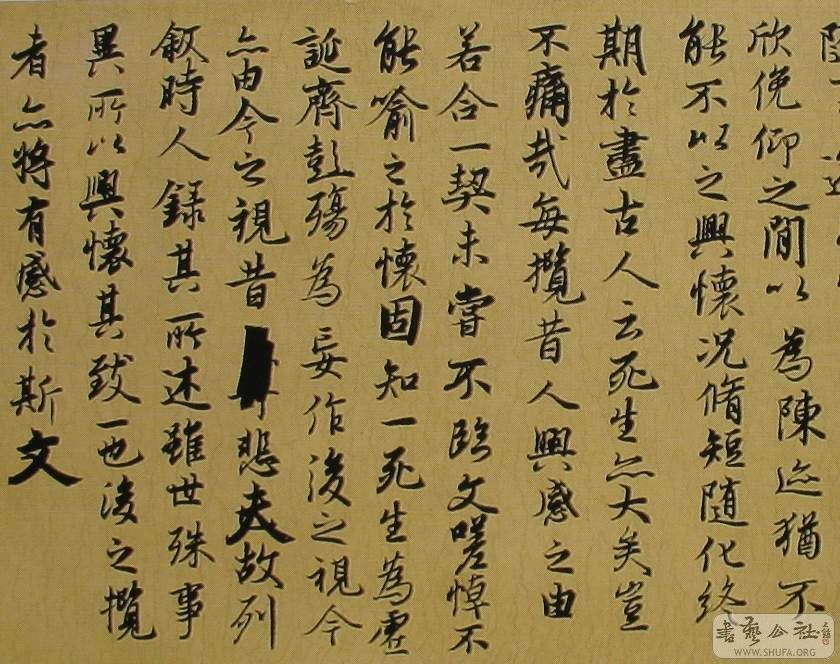 欣俛仰之間以為陳迹猶不
能不以之興懷况脩短隨化終
期於盡古人云死生亦大矣豈
不痛哉每攬昔人興感之由
若合一契未嘗不臨文嗟悼不
能喻之於懷固知一死生為虛
誕齊彭殤為妄作後之視今
亦由今之視昔悲夫故列
叙時人録其所述雖世殊事
異所以興懷其致一也後之攬
者亦將有感於斯文
書藝公社
WWW.SHUFA.ORG